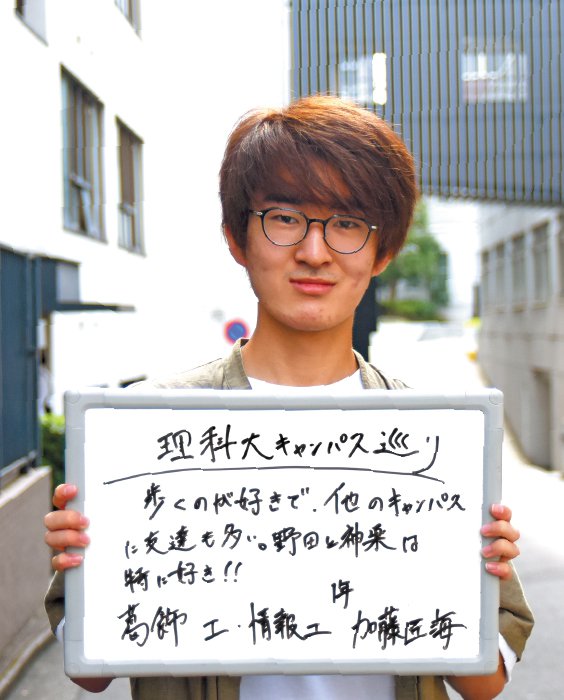 理科大キャンパス巡り
歩くのが好きで、他のキャンパス
に友達も多い。野田と神楽は
特に好き!!
葛飾 工・情報工 1年 加藤匠海